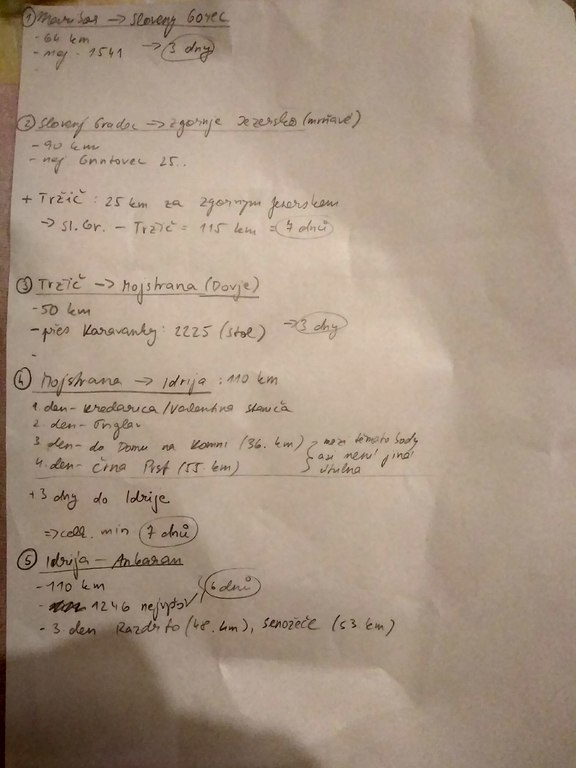 ① Maribor → Slovenj Gorec
- 64 km
- nej - 1541 → 3 dny
② Slovenj Gradec → Zgornje Jezersko (mrňavé)
- 90 km
- nej Grintovec 25..
+ Tržič : 25 km za Zgornjym Jezerskem
→ Sl. Gr. - Tržič = 115 km = 7 dnů
③ Tržič → Mojstrana (Dovje)
- 50 km
- přes Karavanky: 2225 (Stol) → 3 dny
-
④ Mojstrana → Idrija : 110 km
1. den - Kredarica/Valentina Staniča
2. den - Triglav
3. den - do Domu na Komni (36. km) } mezi těmito body
4. den - Črna Prst (55. km) } asi není jiná útulna
+ 3 dny do Idrije
⇒ celk. min 7 dnů
⑤ Idrija - Ankaran
- 110 km
- 1246 nejvyšší 6 dnů
- 3. den Razdrto (48. km), Senožeče (53. km)